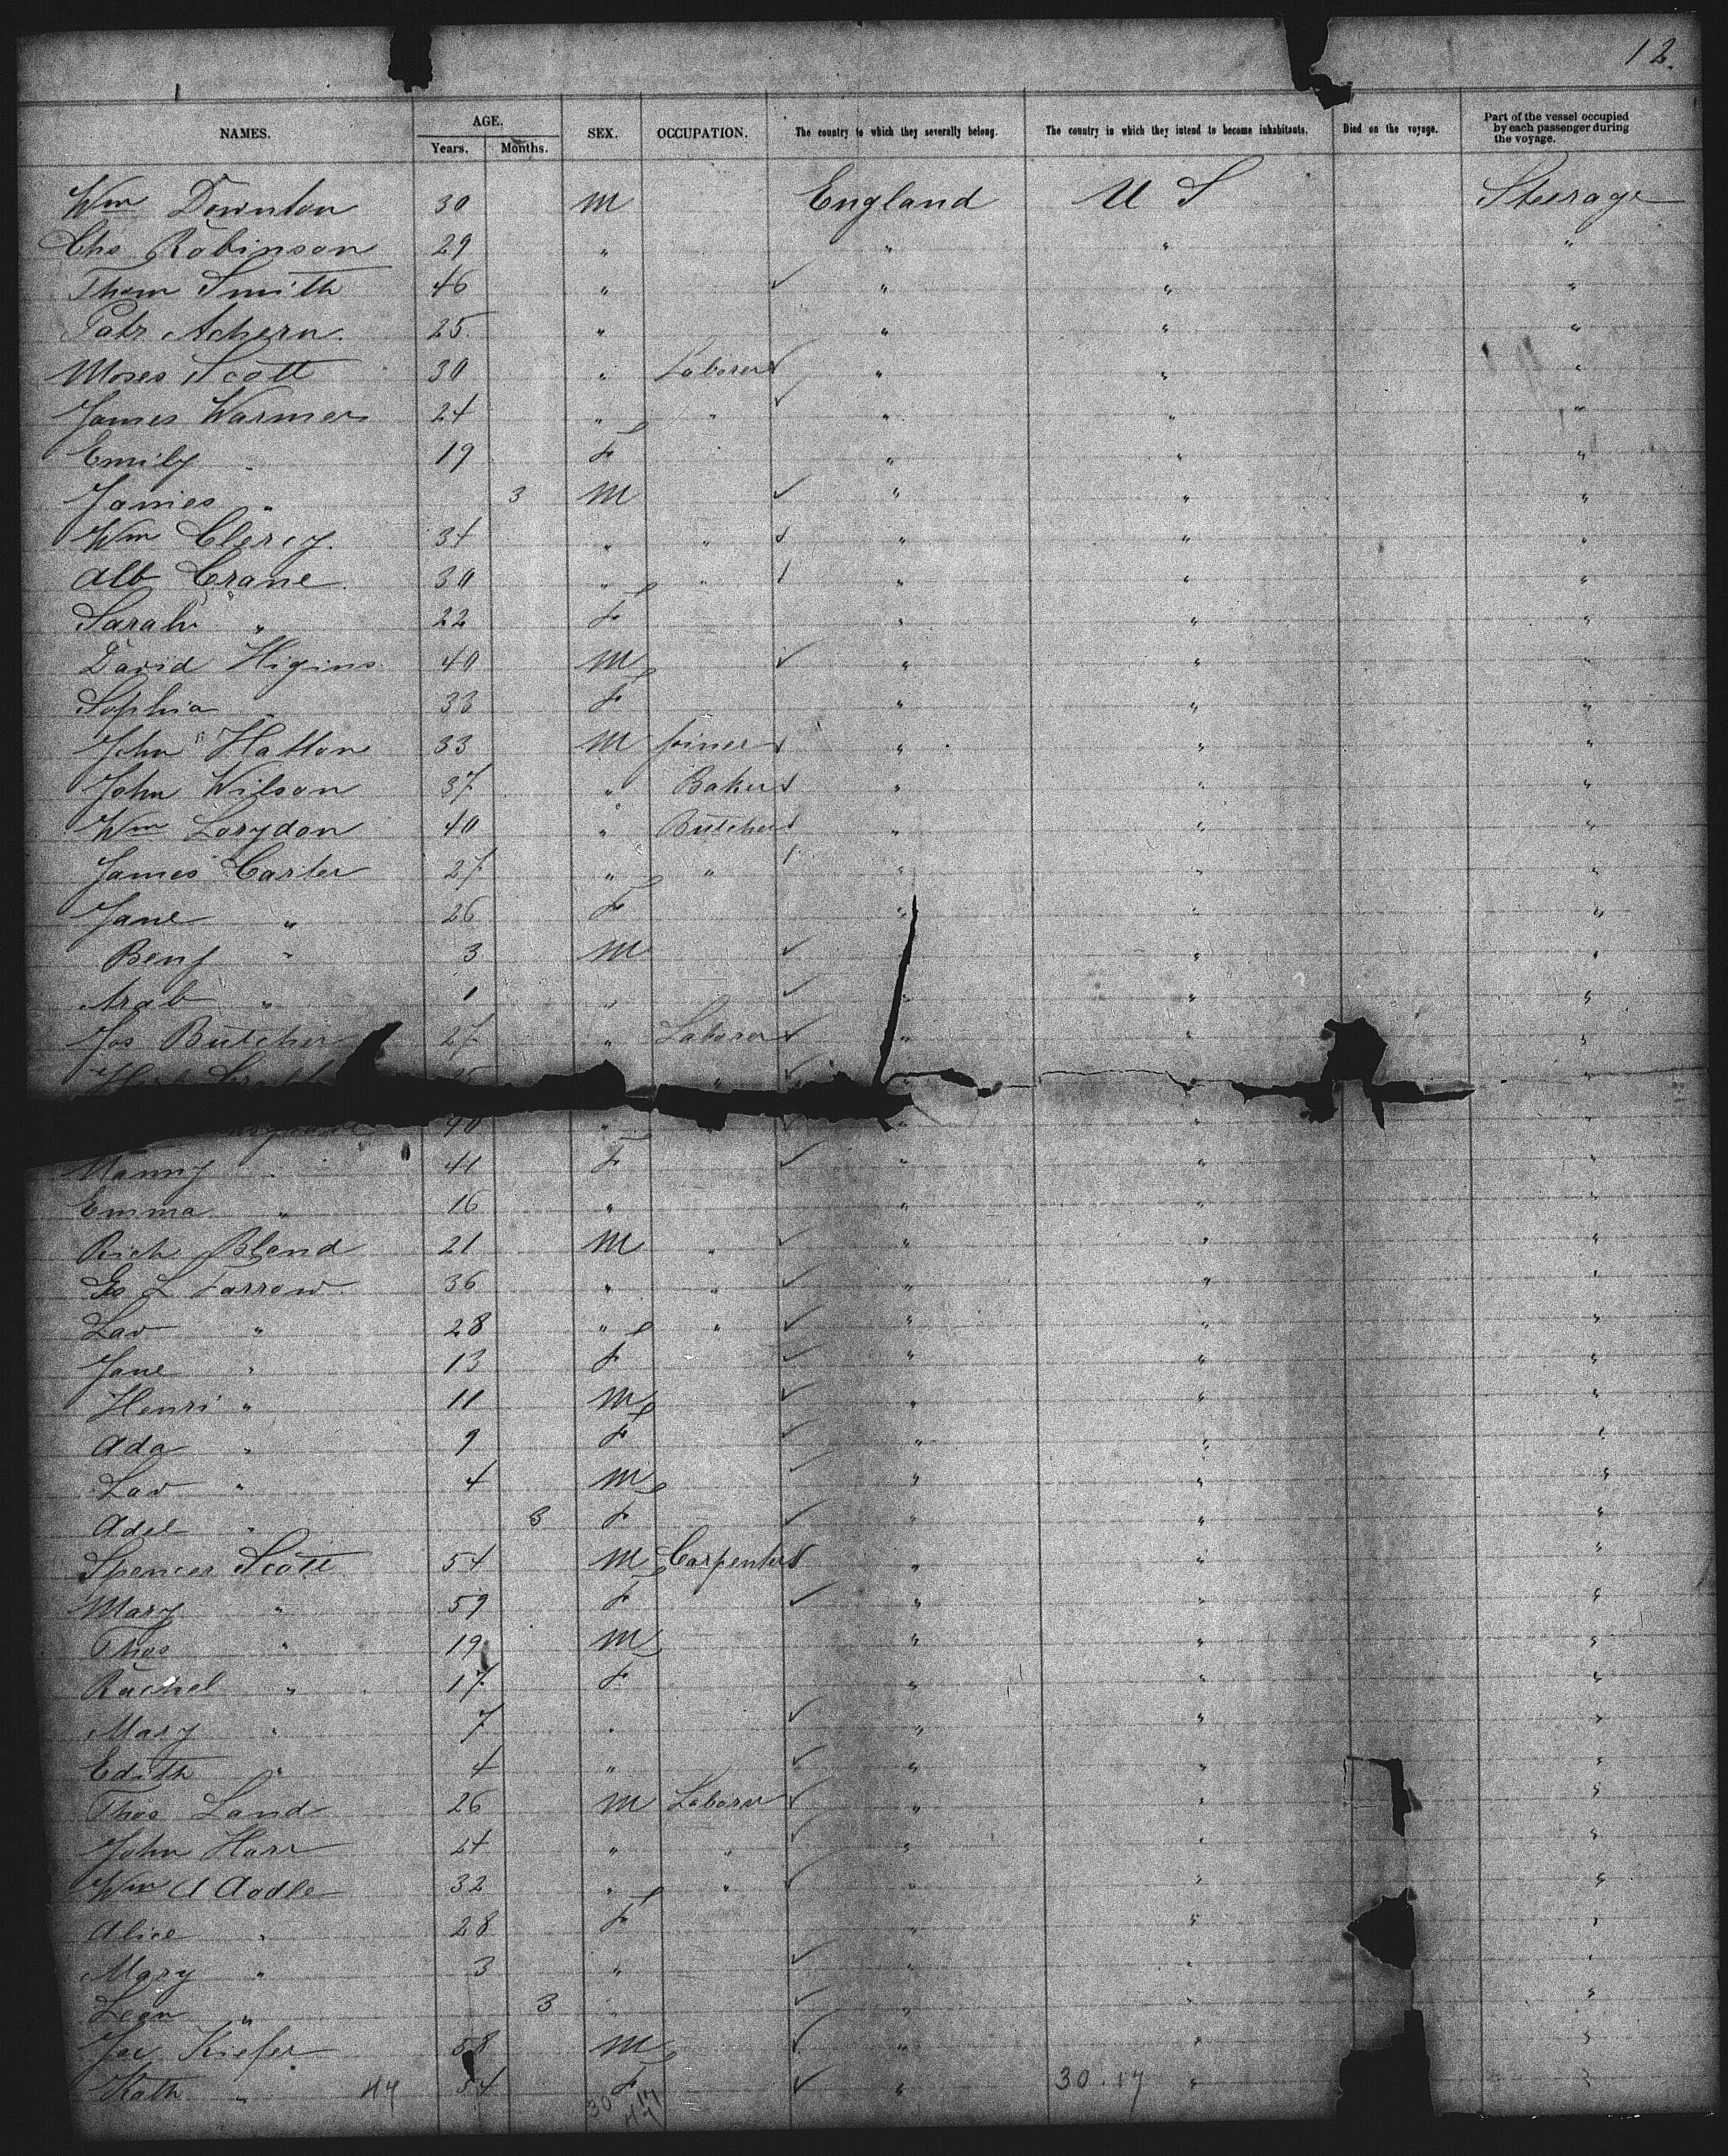 12.
NAMES. AGE. Years. Months. SEX. OCCUPATION. The country to which they severally belong. The country in which they intend to become inhabitants. Died on the voyage. Part of the vessel occupied by each passenger during the voyage.
Wm Downton 30 M England U S Steerage
Chs Robinson 29 " " " "
Thom Smith 46 " " " "
Patr Achern. 25. " " " "
Moses Scott 30 " Laborer " " "
James Warmer 24 " " " " "
Emily " 19 F " " "
James " 3 M " " "
Wm Clercy. 34 " " " " "
Alb Crane 30 " " " " "
Sarah " 22 F " " "
David Higins 40 M " " "
Sophia " 33 F " " "
John Hatton 33 M Joiner " " "
John Wilson 37 " Baker " " "
Wm Corydon 40 " Butcher " " "
James Carter 27 " " " " "
Jane " 26 F " " "
Benj " 3 M " "
Arab " 1 " " " "
Jos Butcher 27 " Laborer " " "
" " "
40 " " " "
Nanny " 41 F " " "
Emma " 16 " " " "
Rich Bland 21 M " " " "
Geo L Farrow 36 " " " " "
Lav " 28 " " " " "
Jane " 13 F " " "
Henri " 11 M " " "
Ada " 9 F " " "
Lav " 4 M " " "
Adel " 3 F " " "
Spencer Scott 54 M Carpenter " " "
Mary " 59 F " " "
Thos " 19 M " " "
Rachel " 17 F " " "
Mary " 7 " " " "
Edith " 4 " " " "
Thos Land 26 M Laborer " " "
John Harr 24 " " " " "
Wm A Aodle 32 " " " " "
Alice " 28 F " " "
Mary " 3 " " " "
Leon " 3 " " " "
Jac Kiefer 58 M " " "
Kath " 47 54 F " 30.17 " "
30 17
47